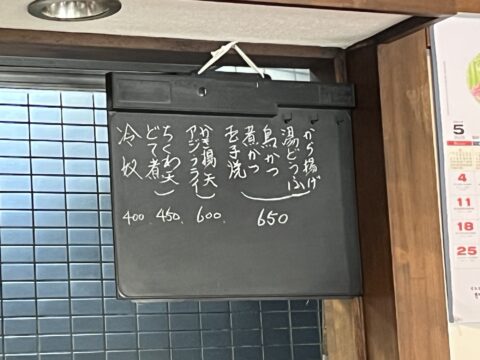 から揚げ
湯どうふ
鳥かつ
煮かつ
玉子焼
650
かき揚天
アジフライ
600
ちくわ天
どて煮
450
冷奴
400
5
4
11
18
25